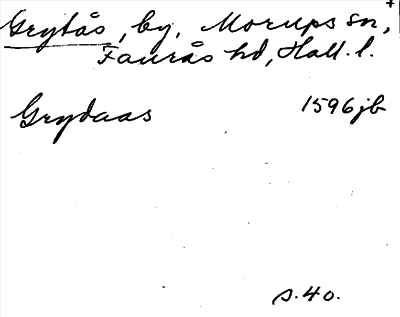 Grytås, by, Morups sn,
Faurås hd, Hall. l.
Grydaas 1596 jb
s. 40.